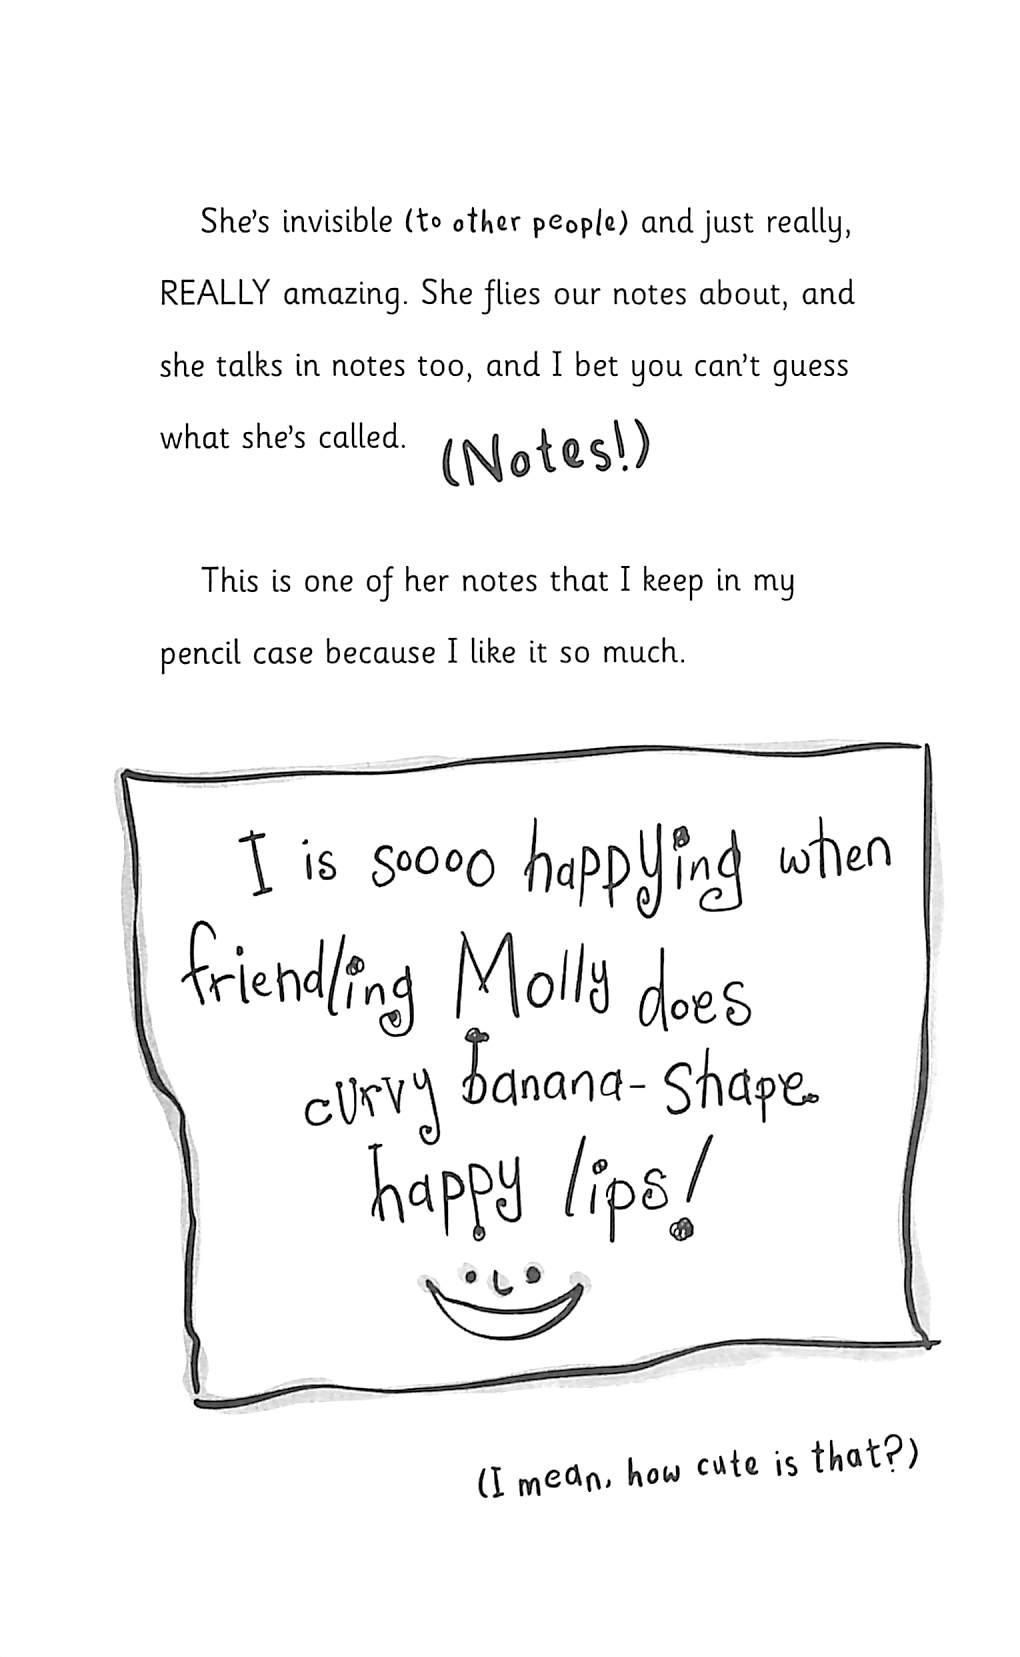 She's invisible (to other people) and just really,
REALLY amazing. She flies our notes about, and
she talks in notes too, and I bet you can't guess
what she's called. (Notes!)
This is one of her notes that I keep in my
pencil case because I like it so much.
I is soooo happying when
friendling Molly does
curvy banana-shape
happy lips!
(I mean, how cute is that?)